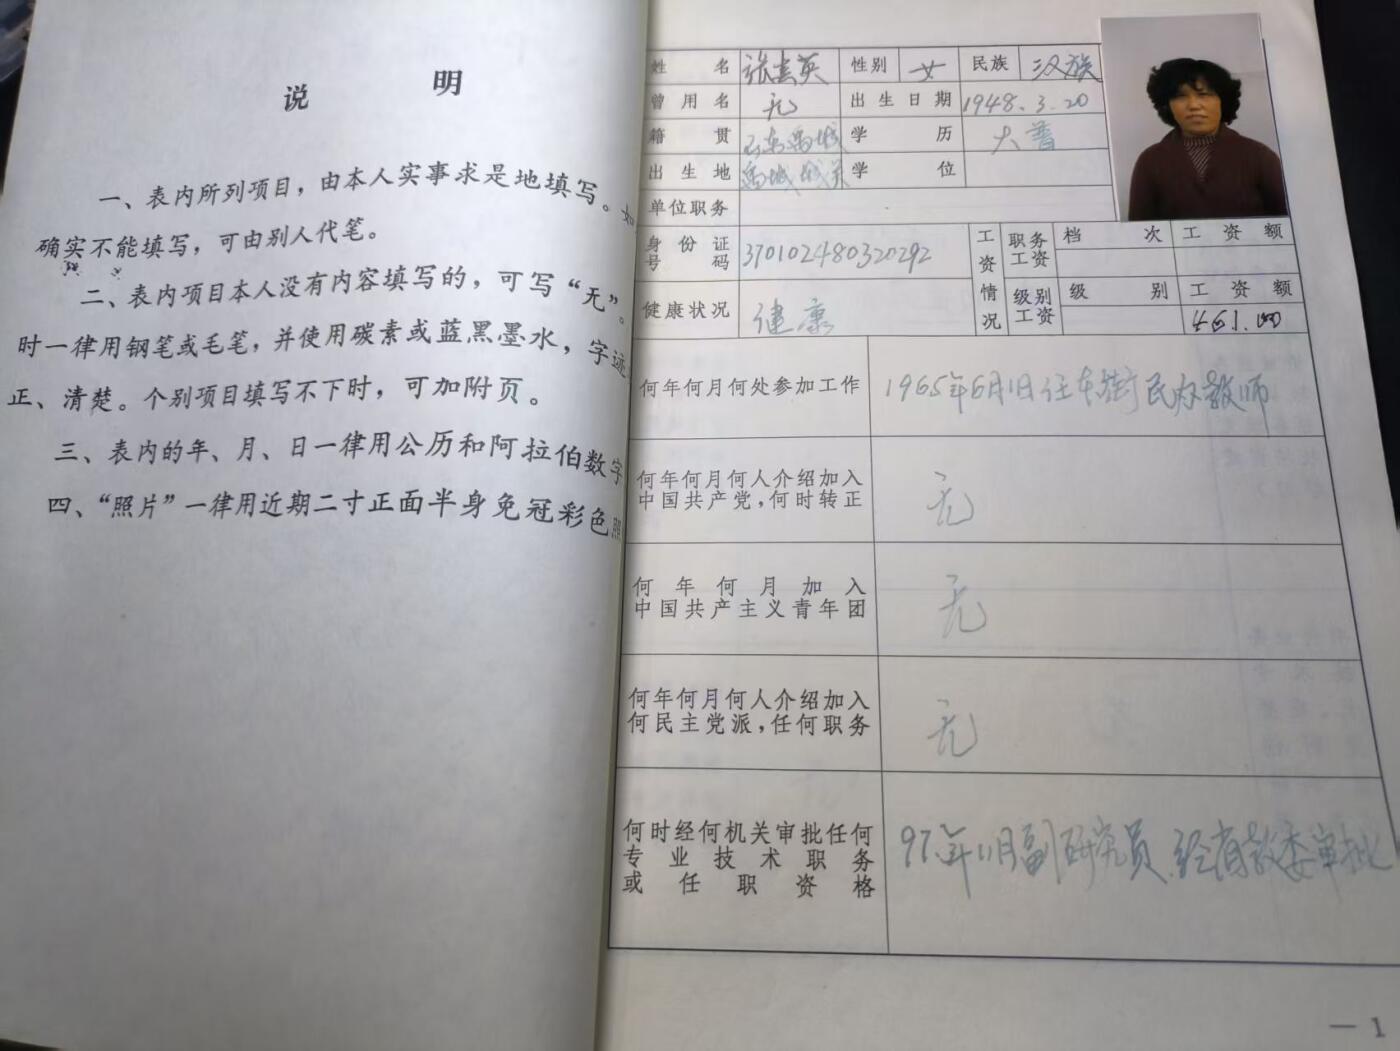 说明
一、表内所列项目，由本人实事求是地填写。如
确实不能填写，可由别人代笔。
二、表内项目本人没有内容填写的，可写“无”。
时一律用钢笔或毛笔，并使用碳素或蓝黑墨水，字迹
正、清楚。个别项目填写不下时，可加附页。
三、表内的年、月、日一律用公历和阿拉伯数字
四、“照片”一律用近期二寸正面半身免冠彩色照
姓名 张 英 性别 女 民族 汉族
曾用名 无 出生日期 1948.3.20
籍贯 山东禹城 学历 大普
出生地 禹城城关 学位
单位职务
身份证号码 370102480320292
工资情况 职务工资 档次 工资额
健康状况 健康
级别工资 级别 工资额
461.00
何年何月何处参加工作 1965年6月1日任东街民办教师
何年何月何人介绍加入
中国共产党，何时转正 无
何年何月加入
中国共产主义青年团 无
何年何月何人介绍加入
何民主党派，任何职务 无
何时经何机关审批任何
专业技术职务
或任职资格
97.年11月副研究员.经省教委审批
— 1